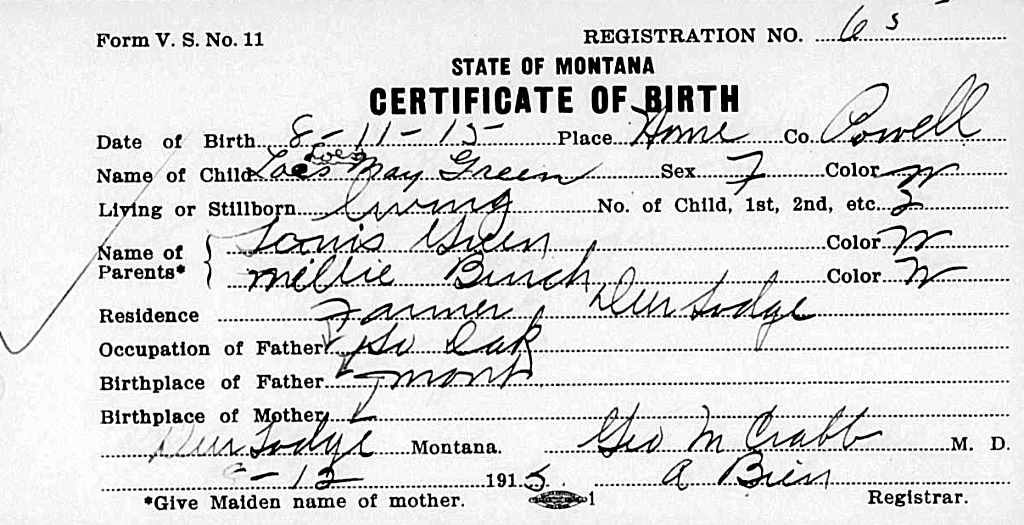 Form V. S. No. 11 REGISTRATION NO. 65
STATE OF MONTANA
CERTIFICATE OF BIRTH
Date of Birth 8-11-15- Place Home Co. Powell
Lois
Name of Child Lois May Green Sex F Color W
Living or Stillborn living No. of Child, 1st, 2nd, etc. 2
Name of Parents* Louis Green Color W
Millie Burch Color W
Residence Farmer Deer Lodge
Occupation of Father So Dak
Birthplace of Father Mont
Birthplace of Mother
Deer Lodge Montana. Geo M Crabb M. D.
-12 1915. A Bien
*Give Maiden name of mother. 1 Registrar.